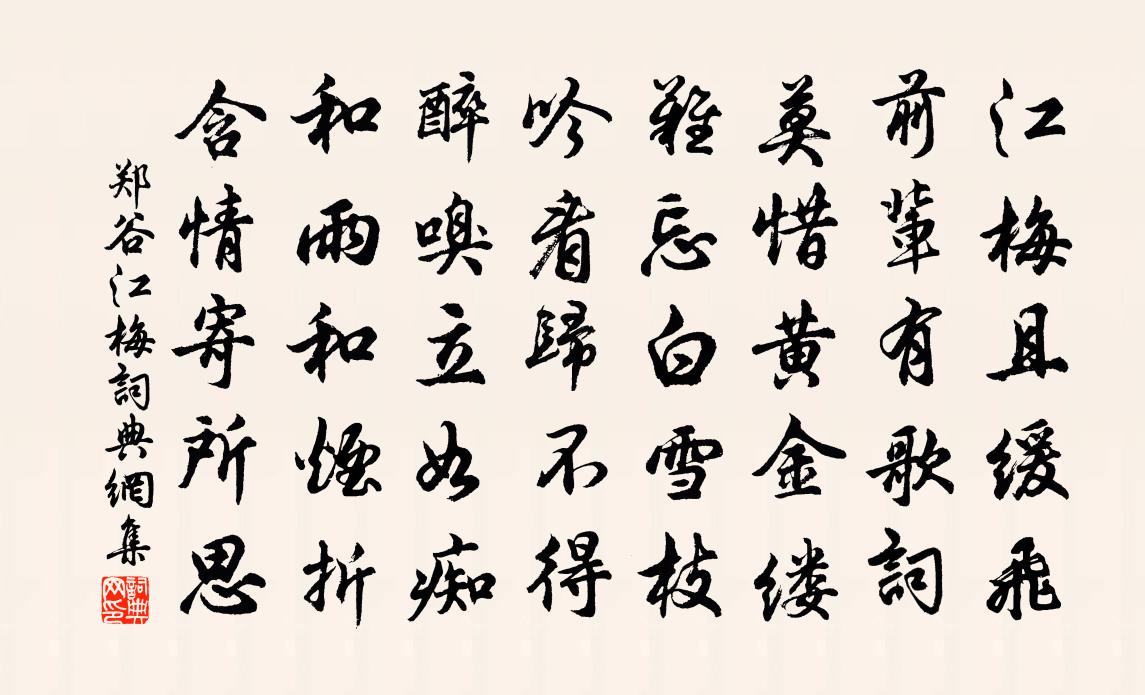 江梅且缓飛
前輩有歌詞
莫惜黄金缕
難忘白雪枝
吟看歸不得
醉嗅立如痴
和雨和煙折
含情寄所思
郑谷江梅詞典網集
詞典网印